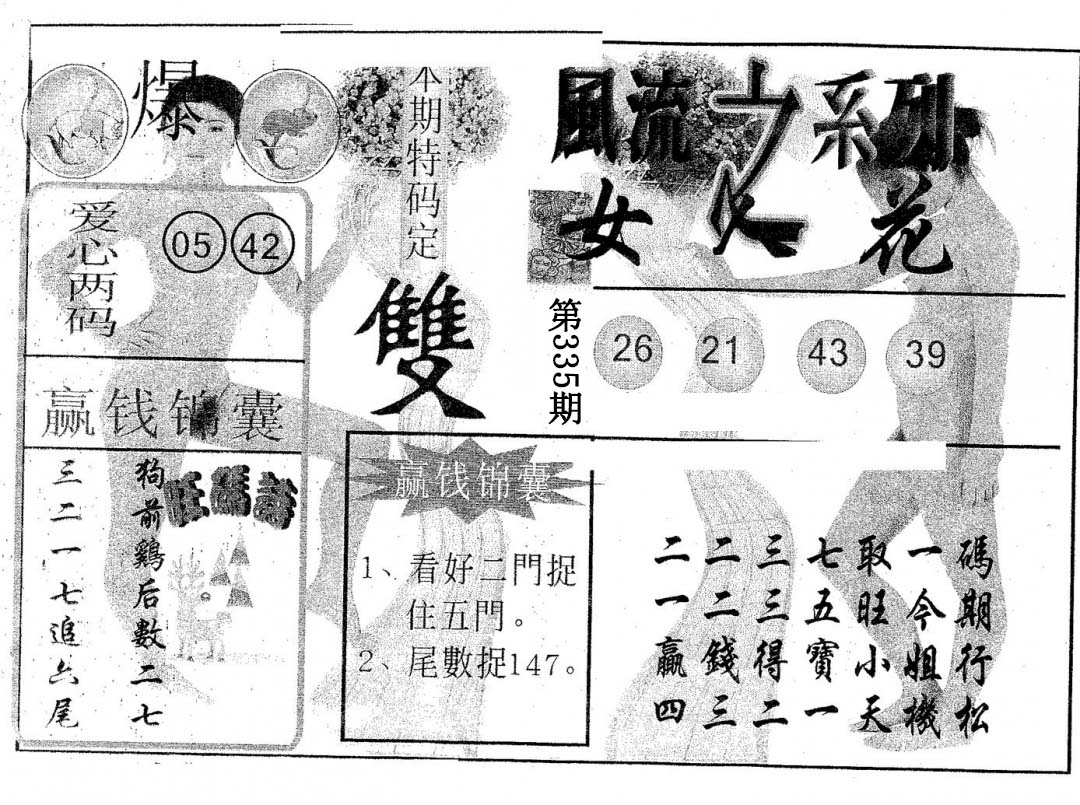 爆
本期特码定
雙
風流之系列
女人花
爱心两码
05 42
第335期
26 21 43 39
赢钱锦囊
狗前鷄后數二七
三二一七追六尾
赢钱锦囊
1、看好二門捉
住五門。
2、尾數捉147。
碼期行松
一今姐機
取旺小天
七五寶一
三三得二
二二錢三
二一贏四